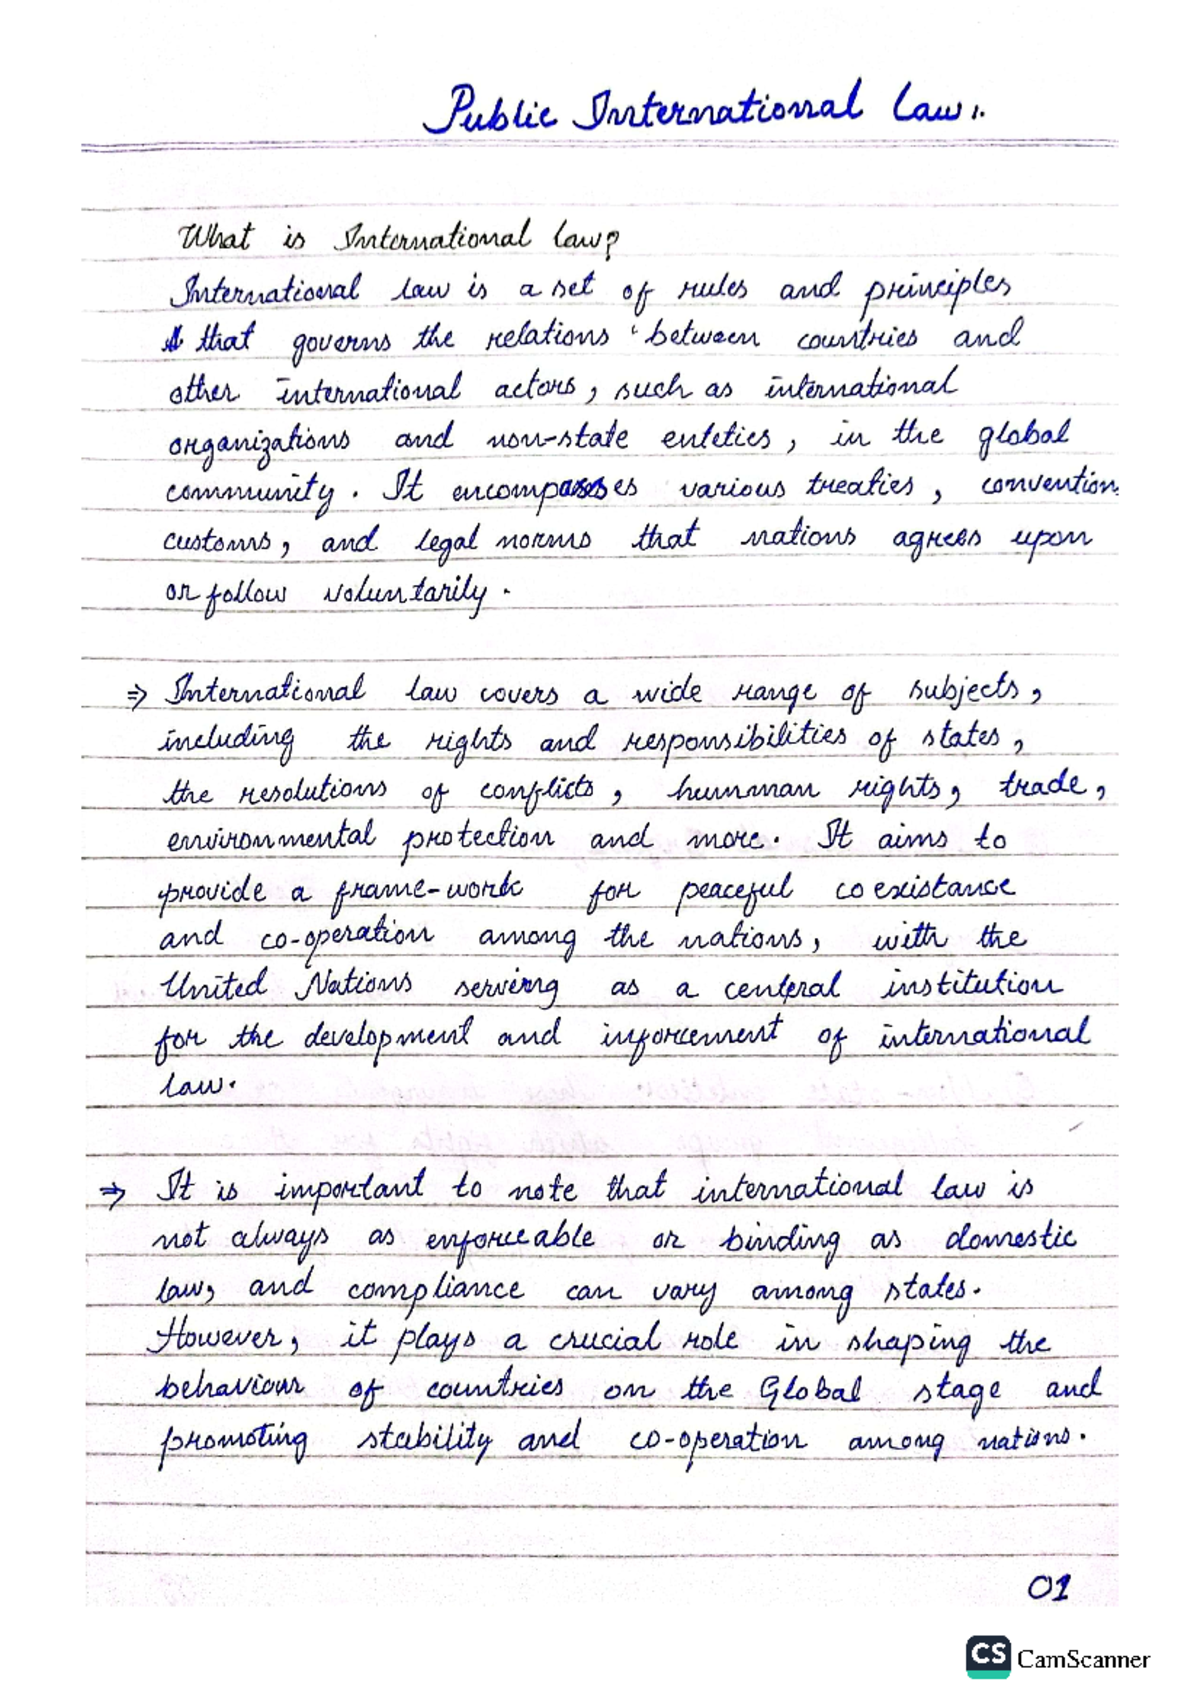 Public International Law:.
What is International law?
International law is a set of rules and principles
that governs the relations between countries and
other international actors, such as international
organizations and non-state enteties, in the global
community. It encompasses various treaties, convention
customs, and legal norms that nations agrees upon
or follow voluntarily.
⇒ International law covers a wide range of subjects,
including the rights and responsibilities of states,
the resolutions of conflicts, humman rights, trade,
environmental protection and more. It aims to
provide a frame-work for peaceful coexistance
and co-operation among the nations, with the
United Nations serving as a central institution
for the development and inforcement of international
law.
⇒ It is important to note that international law is
not always as enforceable or binding as domestic
law, and compliance can vary among states.
However, it plays a crucial role in shaping the
behaviour of countries on the Global stage and
promoting stability and co-operation among nations.
01
CS CamScanner